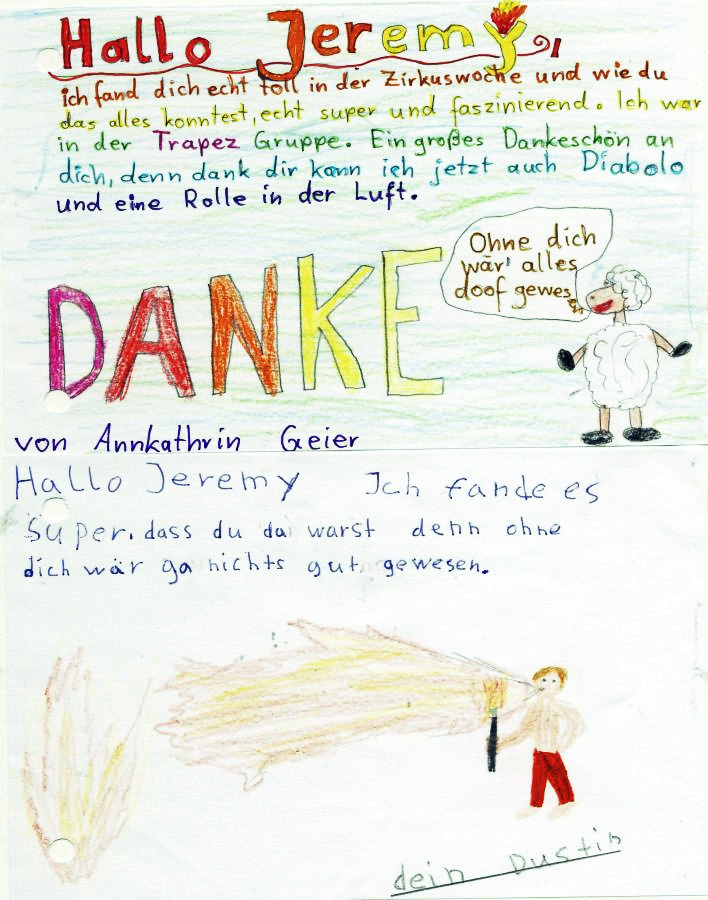 Hallo Jeremy
ich fand dich echt toll in der Zirkuswoche und wie du
das alles konntest, echt super und faszinierend. Ich war
in der Trapez Gruppe. Ein großes Dankeschön an
dich, denn dank dir kann ich jetzt auch Diabolo
und eine Rolle in der Luft.
Ohne dich
wär' alles
doof gewesen
DANKE
von Annkathrin Geier
Hallo Jeremy Ich fande es
super. dass du da warst denn ohne
dich wär ga nichts gut gewesen.
dein Dustin